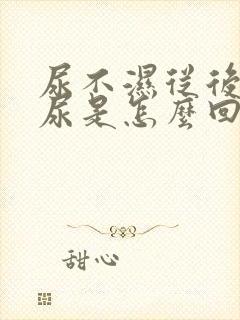 尿不濕從後
尿是怎麼回
甜心